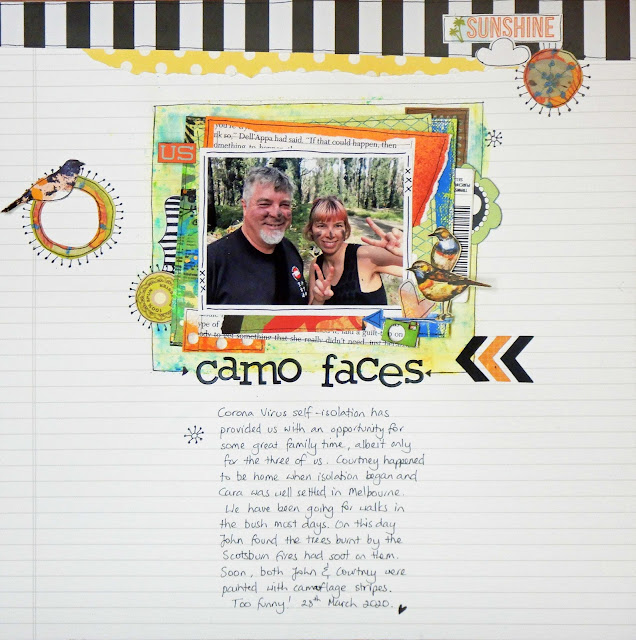 SUNSHINE
so," Dell'Appa had said. "If that could happen, then
US
type of
and a guilt
on
something that she really didn't need, just
camo faces
Corona Virus self-isolation has
provided us with an opportunity for
some great family time, albeit only
for the three of us. Courtney happened
to be home when isolation began and
Cara was well settled in Melbourne.
We have been going for walks in
the bush most days. On this day
John found the trees burnt by the
Scotsburn fires had soot on them.
Soon, both John & Courtney were
painted with camoflage stripes.
Too funny! 28th March 2020. ♥